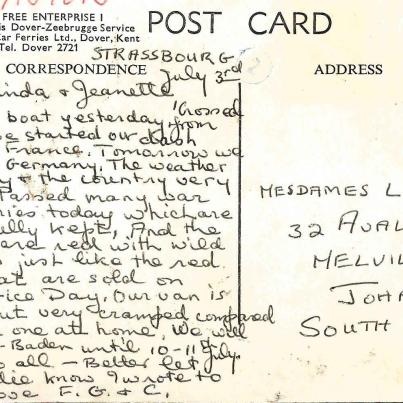 FREE ENTERPRISE I
is Dover-Zeebrugge Service
Car Ferries Ltd., Dover, Kent
Tel. Dover 2721
POST CARD
CORRESPONDENCE
ADDRESS
STRASSBOURG
July 3rd
inda & Jeanette
'Crossed
boat yesterday from
e started our dash
France. Tomorrow we
Germany. The weather
y & the country very
Passed many war
ries today which are
ully kept, And the
are red with wild
s just like the red
at are sold on
ice Day. Our van is
ut very cramped compared
one at home. We will
-Baden until 10-11th July.
o all - Better let
die know I wrote to
ove F. G. & C.
MESDAMES L
32 AVAL
MELVIL
JOHA
SOUTH